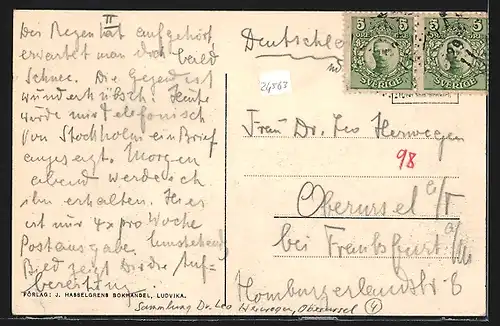 II
Der Regen hat aufgehört
erwartet man doch bald
Schnee. Die Gegend ist
wunderhübsch. Heute
wurde mir telefonisch
von Stockholm ein Brief
angesagt. Morgen
abend werde ich
ihn erhalten. Hier
ist nur 4x pro Woche
Postausgabe. Umstehend
Bild zeigt Dir die Auf-
bereitung
FÖRLAG: J. HASSELGRENS BOKHANDEL, LUDVIKA.
Deutschland
5 5
5 5
SVERIGE
SVERIGE
24563
Frau Dr. Leo Herwegen
98
Oberursel a/T
bei Frankfurt a/M
Homburgerlandstr. 8
Sammlung Dr. Leo Herwegen, Oberursel (4)